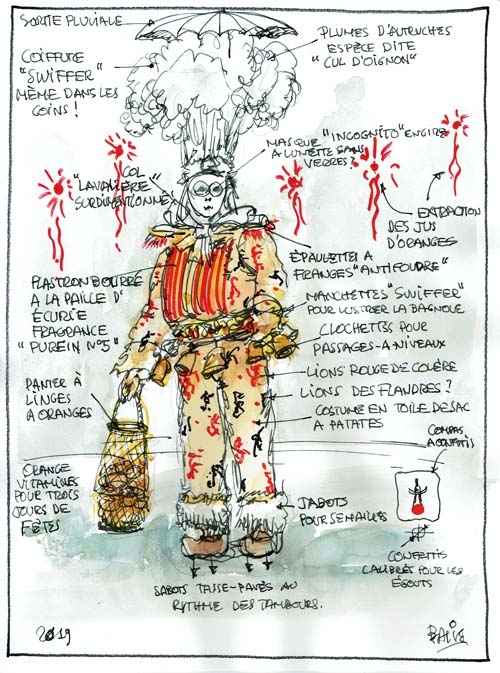 SORTIE PLUVIALE
COIFFURE
"SWIFFER"
MÊME DANS LES
COINS !
PLUMES D'AUTRUCHES
ESPÈCE DITE
"CUL D'OIGNON"
MASQUE "INCOGNITO" EN CIRE
A LUNETTE SANS
VERRES ?
COL
"LAVALLIÈRE
SURDIMENTIONNÉ"
EXTRACTION
DES JUS
D'ORANGES
ÉPAULETTE A
FRANGES "ANTIFOUDRE"
PLASTRON BOURRÉ
A LA PAILLE D'
ÉCURIE
FRAGRANCE
"PUREIN N°5"
MANCHETTES "SWIFFER"
POUR LUSTRER LA BAGNOLE
CLOCHETTES POUR
PASSAGES-A-NIVEAUX
LIONS ROUGE DE COLÈRE
LIONS DES FLANDRES ?
COSTUME EN TOILE DE SAC
A PATATES
PANIER À
LINGES
A ORANGES
COMPAS
A CONFETTIS
ORANGE
VITAMINÉES
POUR TROIS
JOURS DE
FÊTES
JABOTS
POUR SEMAILLES
CONFETTIS
CALIBRÉS POUR LES
ÉGOUTS
SABOTS TASSE-PAVÉS AU
RYTHME DES TAMBOURS.
2019